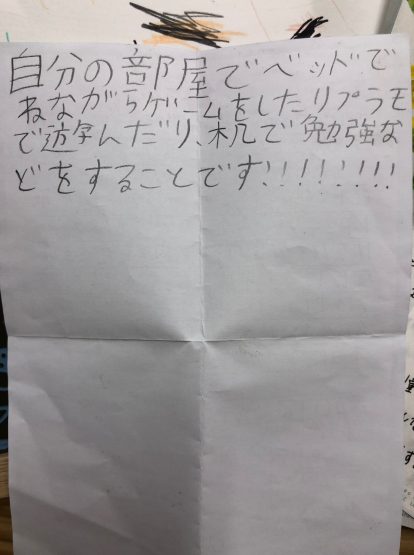 自分の部屋でベッドで
ねながらゲームをしたりプラモ
で遊んだり、机で勉強な
どをすることです!!!!!!!!